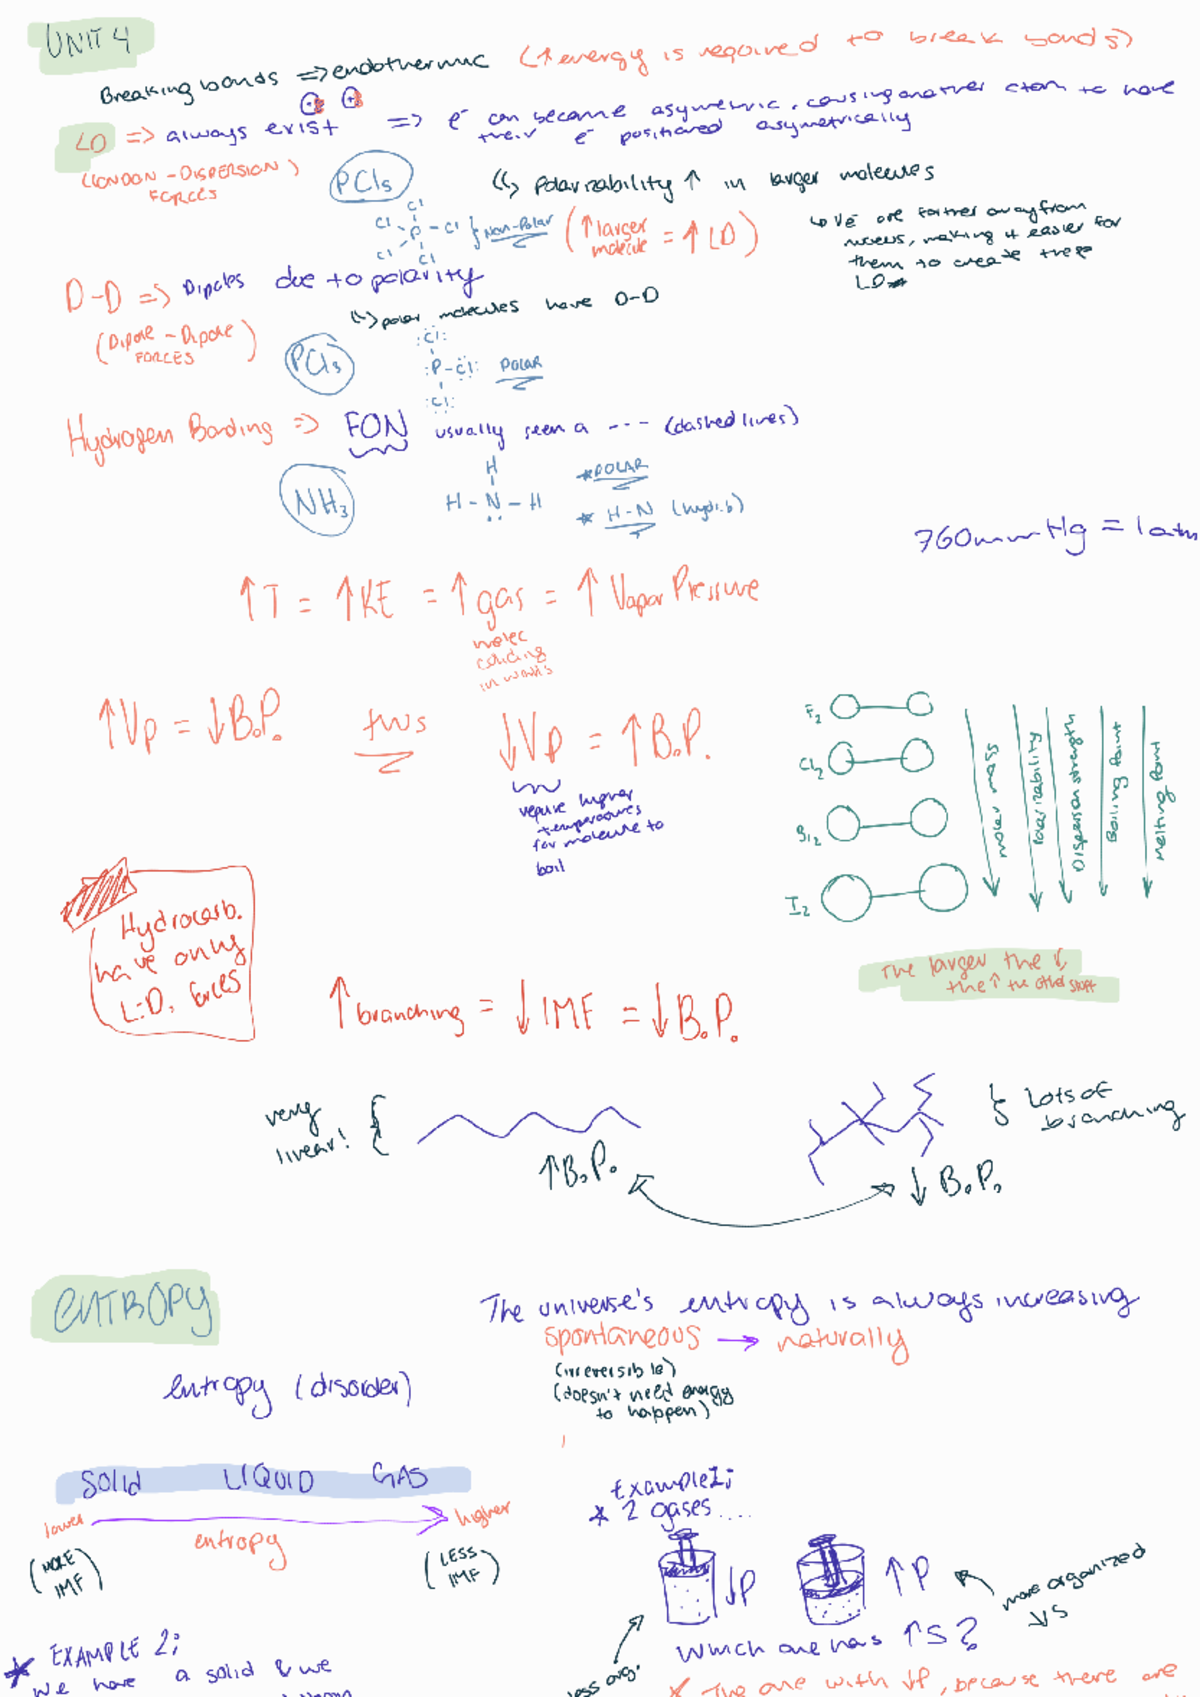 UNIT 4
Breaking bonds => endothermic (↑ energy is required to break bonds)
LD => always exist => e⁻ can become asymetric, causing another atom to have
their e⁻ positioned asymetrically
(LONDON-DISPERSION)
FORCES
PCl5
Cl
Cl Cl
P - Cl
Cl Cl
} Non-Polar
(↑ larger molecule = ↑ LD)
↳ Polarizability ↑ in larger molecules
↳ VE are farther away from
making it easier for
them to create these
LD
D-D => Dipoles due to polarity
(Dipole-Dipole)
FORCES
↳ polar molecules have D-D
PCl3
:Cl:
:P-Cl: POLAR
:Cl:
Hydrogen Bonding => FON usually seen a --- (dashed lines)
NH3
H
H-N-H
* POLAR
* H-N (hyd.b)
760mmHg = 1atm
↑T = ↑KE = ↑gas = ↑ Vapor Pressure
molec
coliding
in walls
↑Vp = ↓B.P. tws ↓Vp = ↑B.P.
require higher
temperatures
for molecule to
boil
F2
Cl2
Br2
I2
molar mass
Polarizability
Dispersion strength
Boiling point
melting point
The larger the ↓,
the ↑ the other stuff
Hydrocarb.
have only
L.D. forces
↑ branching = ↓ IMF = ↓ B.P.
very
linear!
↑B.P.
Lots of
branching
↓ B.P.
ENTROPY
The universe's entropy is always increasing
spontaneous → naturally
(irreversible)
(doesn't need energy
to happen)
entropy (disorder)
SOLID LIQUID GAS
lower → higher
entropy
(MORE
IMF)
(LESS
IMF)
Example 1;
* 2 gases....
↓P
↑P
more organized
↓S
less org.
Which one has ↑S?
* The one with ↓P, because there are
* EXAMPLE 2;
We have a solid & we